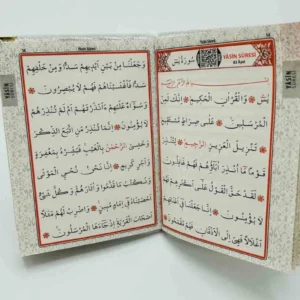 YÂSİN SÛRESİ
83 Âyet
سُورَةُ يٰسٓ
بِسْمِ اللّٰهِ الرَّحْمٰنِ الرَّحِيمِ
يٰسٓ ❁ وَالْقُرْاٰنِ الْحَكِيمِ ❁ اِنَّكَ لَمِنَ
الْمُرْسَلِينَ ❁ عَلٰى صِرَاطٍ مُسْتَقِيمٍ ❁
تَنْزِيلَ الْعَزِيزِ الرَّحِيمِ ❁ لِتُنْذِرَ
قَوْمًا مَٓا اُنْذِرَ اٰبَٓاؤُ۬هُمْ فَهُمْ غَافِلُونَ ❁
لَقَدْ حَقَّ الْقَوْلُ عَلٰٓى اَكْثَرِهِمْ فَهُمْ
لَا يُؤْمِنُونَ ❁ اِنَّا جَعَلْنَا ف۪ٓي اَعْنَاقِهِمْ
اَغْلَالًا فَهِيَ اِلَى الْاَذْقَانِ فَهُمْ مُقْمَحُونَ ❁
وَجَعَلْنَا مِنْ بَيْنِ اَيْدِيهِمْ سَدًّا وَمِنْ خَلْفِهِمْ
سَدًّا فَاَغْشَيْنَاهُمْ فَهُمْ لَا يُبْصِرُونَ ❁
وَسَوَٓاءٌ عَلَيْهِمْ ءَاَنْذَرْتَهُمْ اَمْ لَمْ تُنْذِرْهُمْ
لَا يُؤْمِنُونَ ❁ اِنَّمَا تُنْذِرُ مَنِ اتَّبَعَ الذِّكْرَ
وَخَشِيَ الرَّحْمٰنَ بِالْغَيْبِ فَبَشِّرْهُ بِمَغْفِرَةٍ
وَاَجْرٍ كَرِيمٍ ❁ اِنَّا نَحْنُ نُحْيِ الْمَوْتٰى
وَنَكْتُبُ مَا قَدَّمُوا وَاٰثَارَهُمْ وَكُلَّ شَيْءٍ
اَحْصَيْنَاهُ ف۪ٓي اِمَامٍ مُبِينٍ ❁ وَاضْرِبْ لَهُمْ مَثَلًا
اَصْحَابَ الْقَرْيَةِ اِذْ جَٓاءَهَا الْمُرْسَلُونَ ❁
YÂSİN